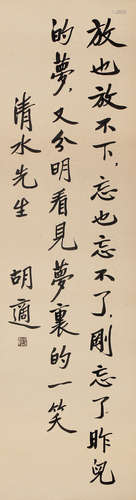 放也放不下,忘也忘不了,剛忘了昨兒
的夢,又分明看見夢裏的一笑
清水先生
胡適